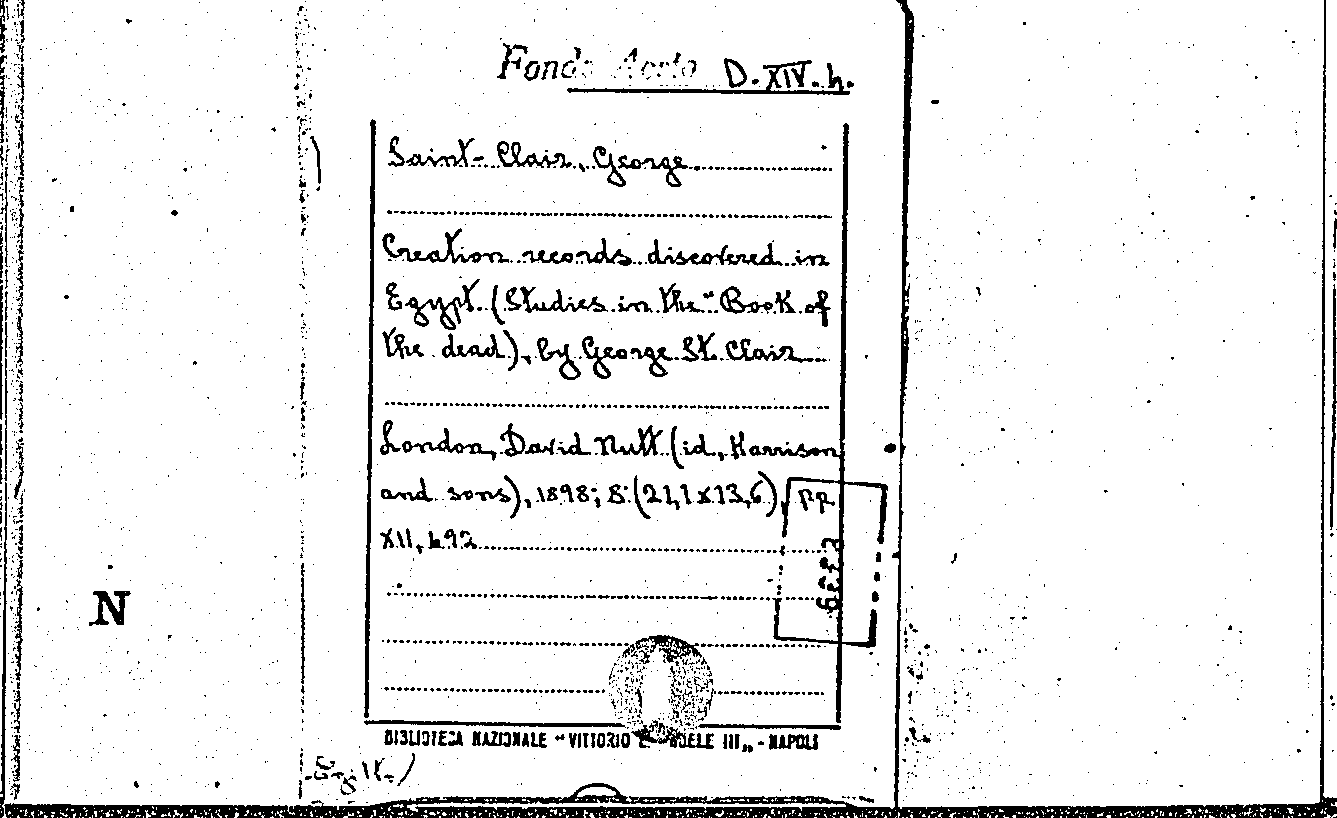 Fondo Aosta D. XIV. 4.
Saint-Clair, George.
Creation records discovered in
Egypt. (Studies in the "Book of
the dead), by George St. Clair
London, David Nutt (id, Harrison
and sons), 1898; 8° (21,1x13,6), pp
XII, 492
N
BIBLIOTECA NAZIONALE "VITTORIO E ELE III„ - NAPOLI